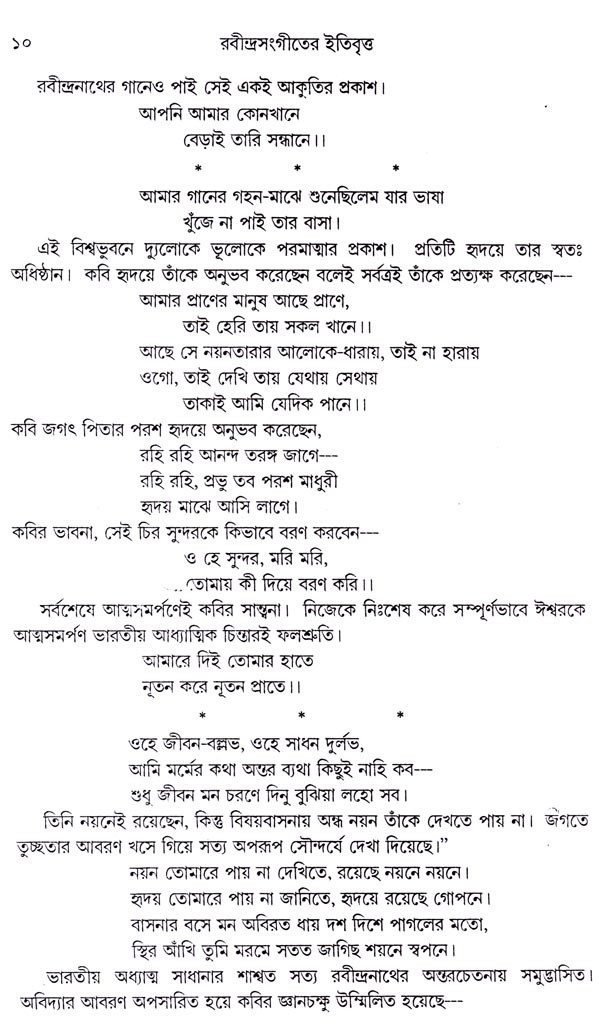 ১০ রবীন্দ্রসংগীতের ইতিবৃত্ত
রবীন্দ্রনাথের গানেও পাই সেই একই আকুতির প্রকাশ।
আপনি আমার কোনখানে
বেড়াই তারি সন্ধানে।।
* * *
আমার গানের গহন-মাঝে শুনেছিলেম যার ভাষা
খুঁজে না পাই তার বাসা।
এই বিশ্বভুবনে দ্যুলোকে ভূলোকে পরমাত্মার প্রকাশ। প্রতিটি হৃদয়ে তার স্বতঃ
অধিষ্ঠান। কবি হৃদয়ে তাঁকে অনুভব করেছেন বলেই সর্বত্রই তাঁকে প্রত্যক্ষ করেছেন---
আমার প্রাণের মানুষ আছে প্রাণে,
তাই হেরি তায় সকল খানে।।
আছে সে নয়নতারার আলোকে-ধারায়, তাই না হারায়
ওগো, তাই দেখি তায় যেথায় সেথায়
তাকাই আমি যেদিক পানে।।
কবি জগৎ পিতার পরশ হৃদয়ে অনুভব করেছেন,
রহি রহি আনন্দ তরঙ্গ জাগে---
রহি রহি, প্রভু তব পরশ মাধুরী
হৃদয় মাঝে আসি লাগে।
কবির ভাবনা, সেই চির সুন্দরকে কিভাবে বরণ করবেন---
ও হে সুন্দর, মরি মরি,
তোমায় কী দিয়ে বরণ করি।।
সর্বশেষে আত্মসমর্পণেই কবির সান্ত্বনা। নিজেকে নিঃশেষ করে সম্পূর্ণভাবে ঈশ্বরকে
আত্মসমর্পণ ভারতীয় আধ্যাত্মিক চিন্তারই ফলশ্রুতি।
আমারে দিই তোমার হাতে
নূতন করে নূতন প্রাতে।।
* * *
ওহে জীবন-বল্লভ, ওহে সাধন দুর্লভ,
আমি মর্মের কথা অন্তর ব্যথা কিছুই নাহি কব---
শুধু জীবন মন চরণে দিনু বুঝিয়া লহো সব।
তিনি নয়নেই রয়েছেন, কিন্তু বিষয়বাসনায় অন্ধ নয়ন তাঁকে দেখতে পায় না। জগতে
তুচ্ছতার আবরণ খসে গিয়ে সত্য অপরূপ সৌন্দর্যে দেখা দিয়েছে।”
নয়ন তোমারে পায় না দেখিতে, রয়েছে নয়নে নয়নে।
হৃদয় তোমারে পায় না জানিতে, হৃদয়ে রয়েছে গোপনে।
বাসনার বসে মন অবিরত ধায় দশ দিশে পাগলের মতো,
স্থির আঁখি তুমি মরমে সতত জাগিছ শয়নে স্বপনে।
ভারতীয় অধ্যাত্ম সাধানার শাশ্বত সত্য রবীন্দ্রনাথের অন্তরচেতনায় সমুদ্ভাসিত।
অবিদ্যার আবরণ অপসারিত হয়ে কবির জ্ঞানচক্ষু উম্মিলিত হয়েছে---